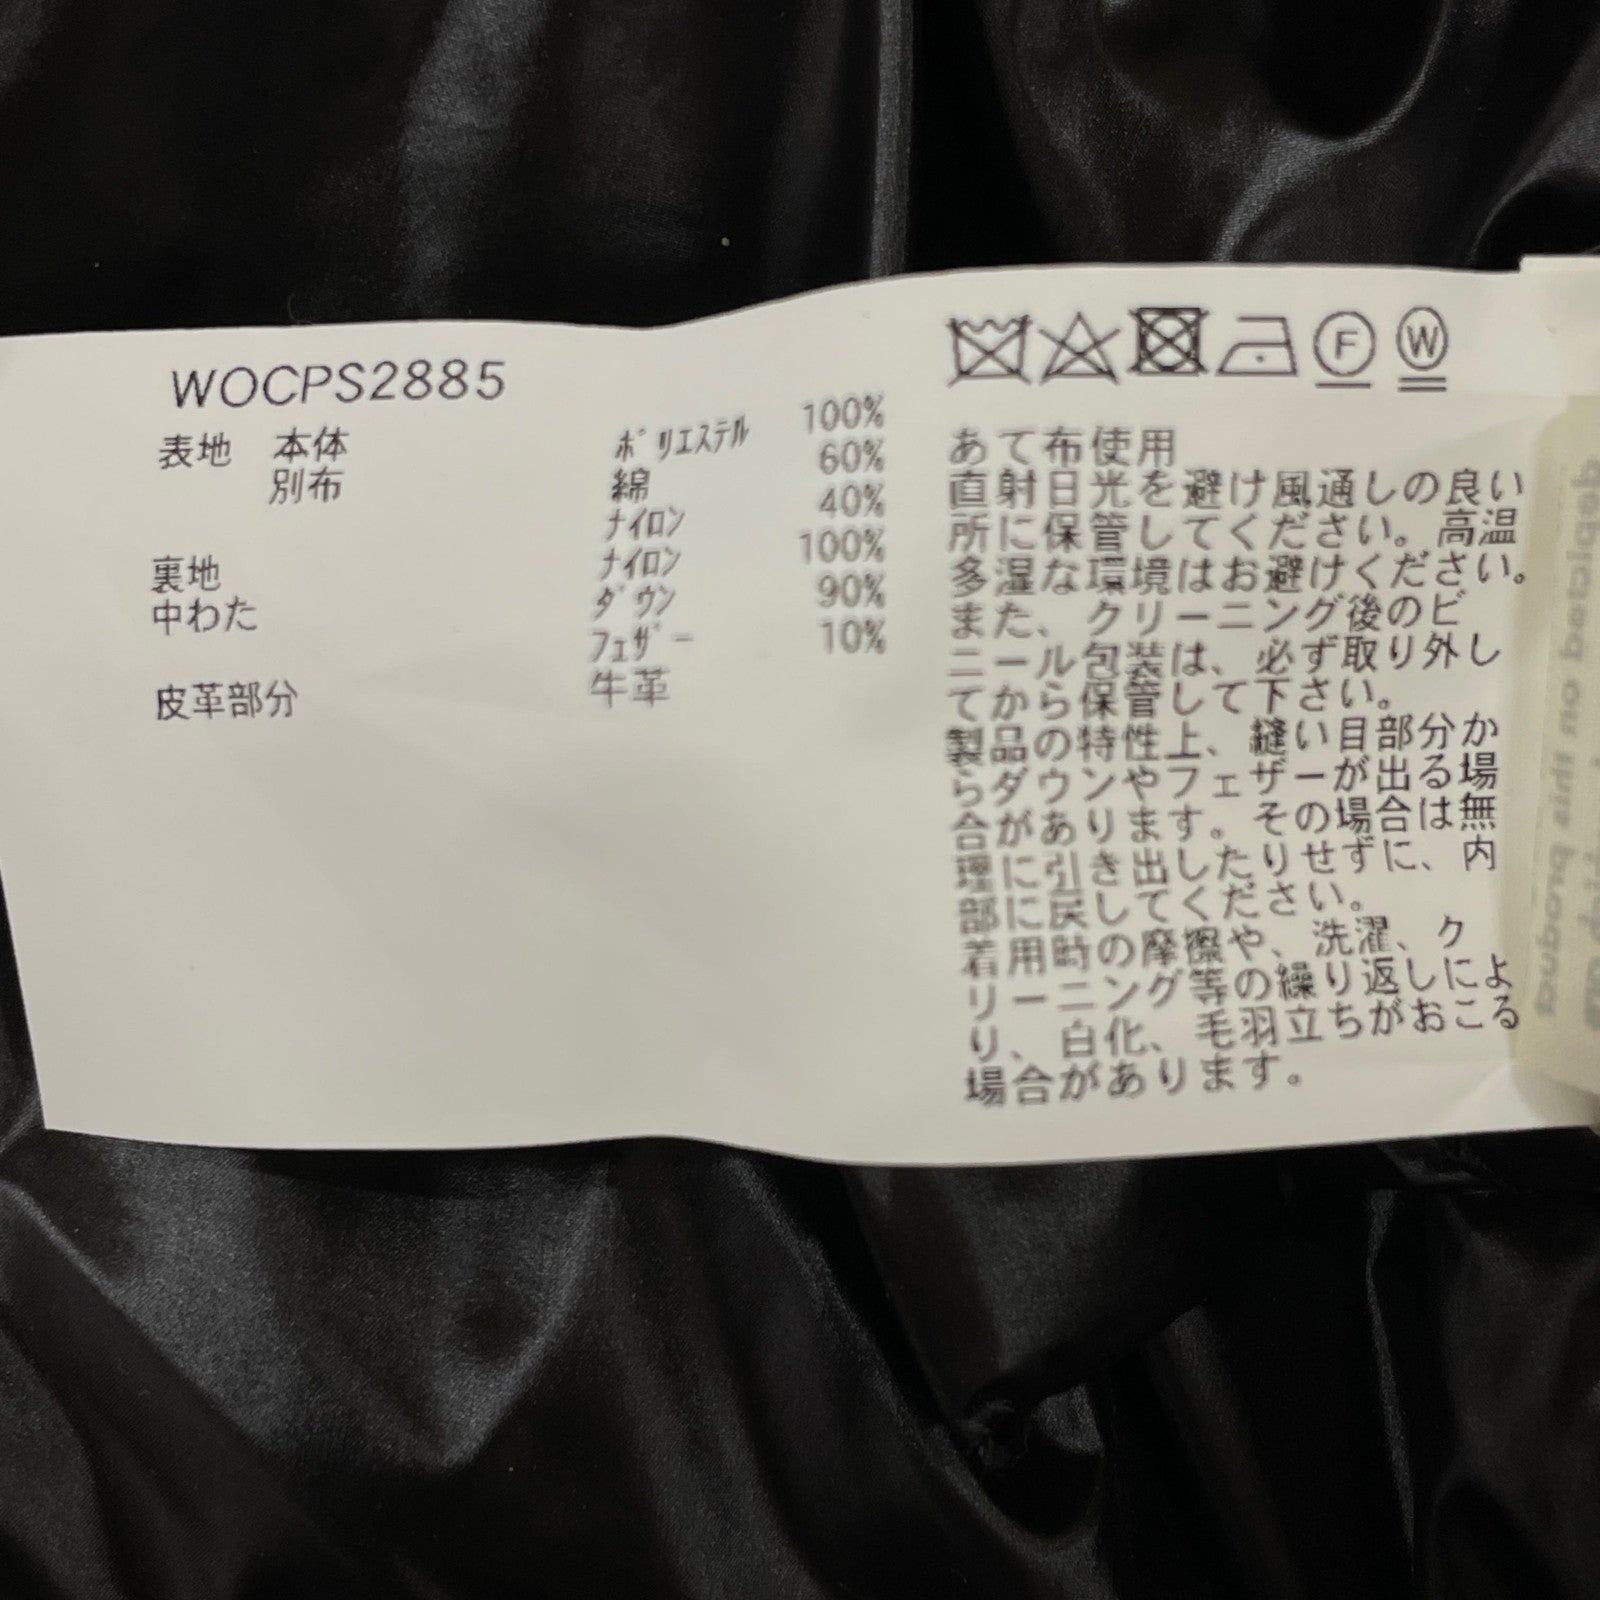 WOCPS2885
表地 本体 ポリエステル 100%
別布 綿 60%
ナイロン 40%
裏地 ナイロン 100%
中わた ダウン 90%
フェザー 10%
皮革部分 牛革
F W
あて布使用
直射日光を避け風通しの良い
所に保管してください。高温
多湿な環境はお避けください。
また、クリーニング後のビ
ニール包装は、必ず取り外し
てから保管して下さい。
製品の特性上、縫い目部分か
らダウンやフェザーが出る場
合があります。その場合は無
理に引き出したりせずに、内
部に戻してください。
着用時の摩擦や、洗濯、ク
リーニング等の繰り返しによ
り、白化、毛羽立ちがおこる
場合があります。
depicted on this product